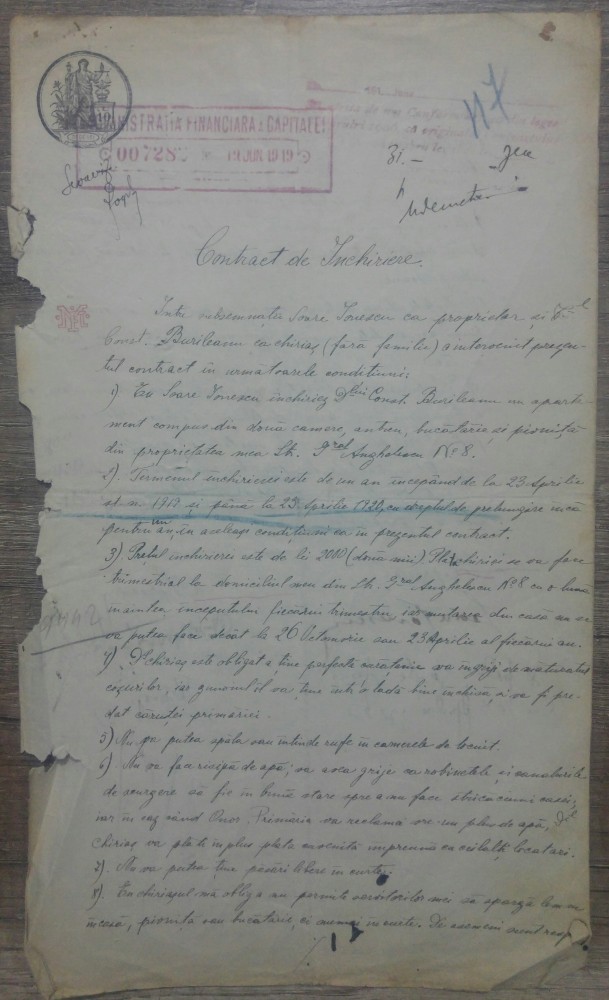 ADMINISTRATIA FINANCIARA A CAPITALEI
00728 * 19 JUN. 1919
117
31.- Jen
Contract de Inchiriere.
Intre subsemnații Soare Ionescu ca proprietar și D-l
Const. Burileanu ca chiriaș (fără familie) a intervenit prezen-
tul contract în urmatoarele condițiuni:
1) Eu Soare Ionescu închiriez D-lui Const. Burileanu un aparta-
ment compus din două camere, antreu, bucătărie și pivniță
din proprietatea mea Str. G-ral Anghelescu No 8.
2). Termenul închirierei este de un an începând de la 23 Aprilie
st. n. 1919 și până la 23 Aprilie 1920, cu dreptul de prelungire încă
pentru un an, în aceleași condițiuni ca în prezentul contract.
3) Prețul închirierei este de lei 2000 (două mii) Plata chiriei se va face
trimestrial la domiciliul meu din Str. G-ral Anghelescu No 8 cu o lună
înaintea începutului fiecărui trimestru, iar mutarea din casă nu se
va putea face decât la 26 Octomvrie sau 23 Aprilie al fiecărui an.
4) D-l chiriaș este obligat a ține perfectă curățenie va îngriji de măturatul
coșurilor, iar gunoiul îl va ține într'o ladă bine închisă, și va fi pre-
dat căruței primăriei.
5) Nu va putea spăla sau întinde rufe în camerele de locuit.
6) Nu va face risipă de apă; va avea grije ca robinetele și canalurile
de scurgere să fie în bună stare spre a nu face stricăciuni casei;
iar în caz când Onor. Primăria va reclama vre-un plus de apă, D-l
chiriaș va plăti în plus plata cuvenită împreună cu ceilalți locatari.
7). Nu va putea ține păsări libere în curte.
8). Eu chiriașul mă oblig a nu permite servitorilor mei să spargă lemne
în casă, pivniță sau bucătărie, ci numai în curte. De asemeni sunt resp